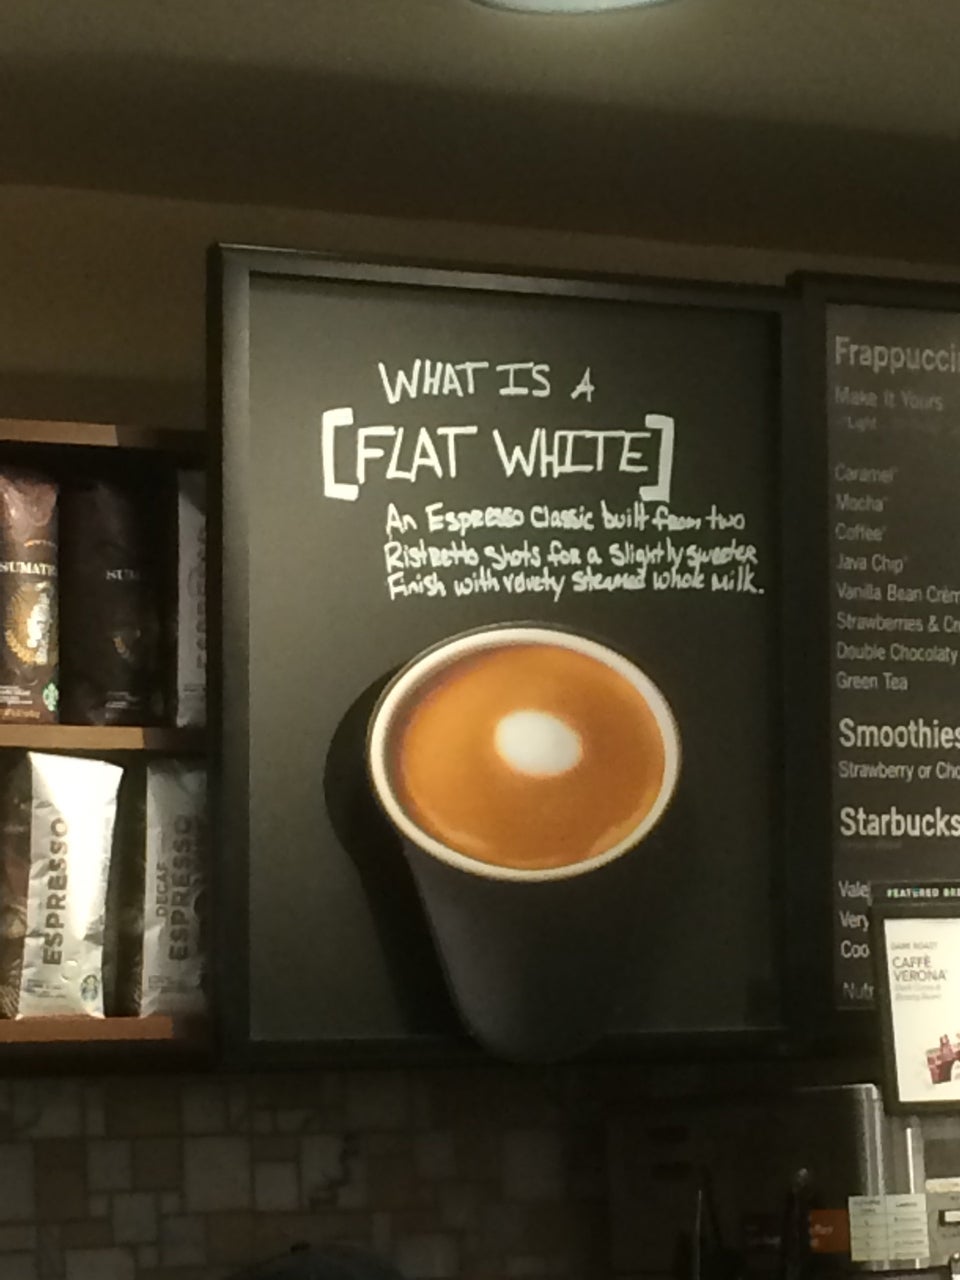 WHAT IS A
[FLAT WHITE]
An Espresso Classic built from two
Ristretto shots for a slightly sweeter
Finish with velvety steamed whole Milk.
SUMATR
SUM
ESPRESSO
DECAF
ESPRESSO
Frappucci
Make It Yours
Light
Caramel
Mocha
Coffee
Java Chip
Vanilla Bean Crèm
Strawberries & Cr
Double Chocolaty
Green Tea
Smoothies
Strawberry or Cho
Starbucks
Vale
Very
Coo
Nutr
FEATURED BRE
DARK ROAST
CAFFÈ
VERONA